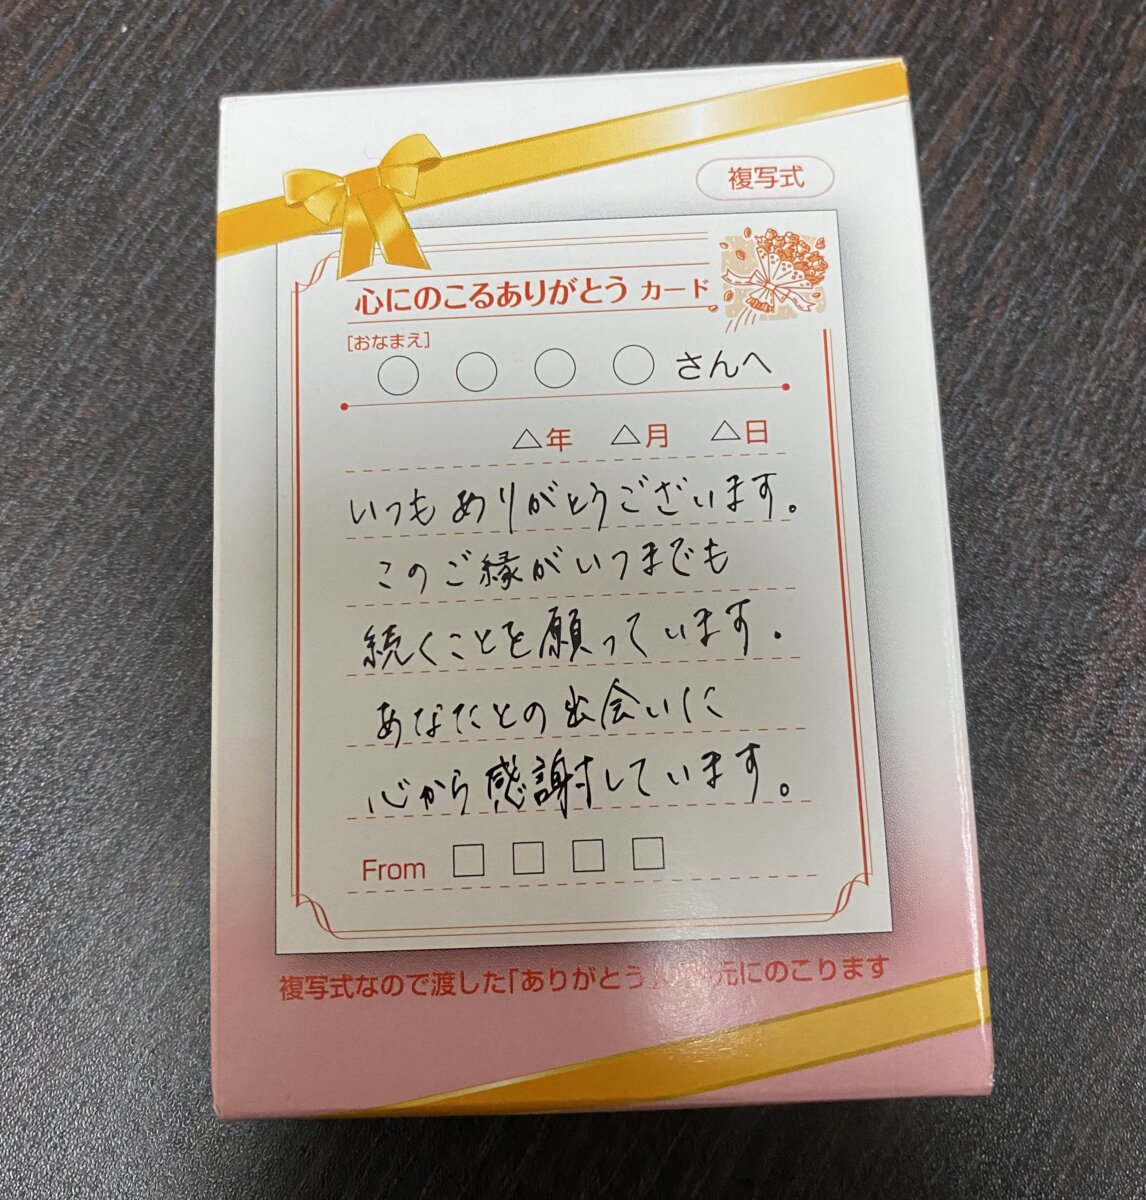 複写式
心にのこるありがとう カード
[おなまえ]
○ ○ ○ ○ さんへ
△年 △月 △日
いつもありがとうございます。
このご縁がいつまでも
続くことを願っています。
あなたとの出会いに
心から感謝しています。
From □ □ □ □
複写式なので渡した「ありがとう」 元にのこります